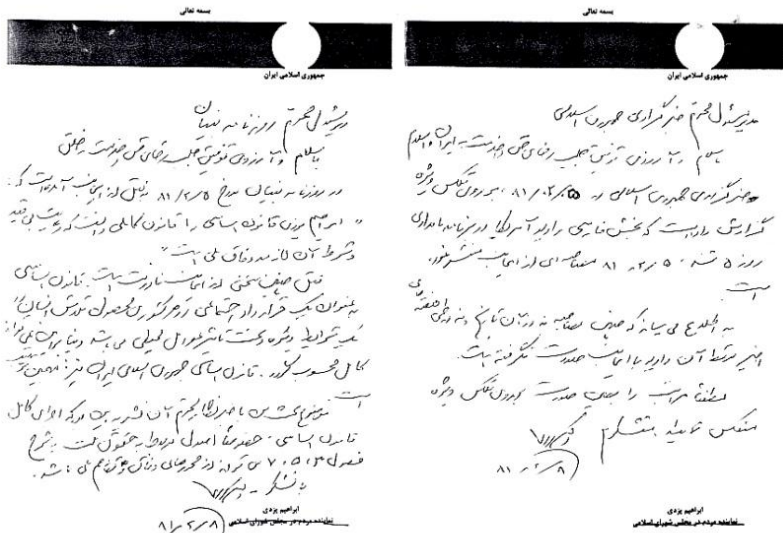 بسمه تعالی
جمهوری اسلامی ایران
مدیر مسئول محترم خبرگزاری جمهوری اسلامی
با سلام و آرزوی توفیق جلب رضای حق و خدمت به ایران و اسلام
خبرگزاری جمهوری اسلامی در ۸۱/۰۲/۰۵ بر روی تلکس ویژه
گزارش داده است که بخش فارسی رادیو آمریکا در برنامه بامدادی
روز ۵ شنبه ۵/۲/۸۱ مصاحبه‌ای از اینجانب منتشر نمود
است
به اطلاع می‌رساند که چنین مصاحبه نه در آن تاریخ و نه در
اخیر توسط آن رادیو با اینجانب صورت نگرفته است.
لطفاً مراتب را بهمین صورت بر روی تلکس ویژه
منعکس نمائید. متشکرم
۸/۲/۸۱
ابراهیم یزدی
نماینده مردم در مجلس شورای اسلامی
بسمه تعالی
جمهوری اسلامی ایران
مدیر مسئول محترم روزنامه بنیان
با سلام و آرزوی توفیق جلب رضای حق و خدمت به خلق
در روزنامه بنیان مورخ ۵/۲/۸۱ به نقل از اینجانب آمده است که:
" ابراهیم یزدی قانون اساسی را قانون کاملی دانست که رعایت بی قید
و شرط آن لازمه وفاق ملی است "
نقل چنین سخنی از اینجانب نادرست است. قانون اساسی
به عنوان یک قرارداد اجتماعی در هر کشوری محصول تلاش انسان
یک شرایط ویژه و تحت تاثیر عوامل محیطی می‌باشد و بنابراین نمی‌تواند
کامل محسوب گردد. قانون اساسی جمهوری اسلامی ایران نیز همین
است
موضوع بحث من با خبرنگار محترم آن نشریه این بود که اجرای کامل
قانون اساسی، خصوصاً اصول مربوط به حقوق ملت به شرح
فصول ۳، ۵، ۷ می‌تواند از محورهای وفاق و تفاهم ملی باشد.
با تشکر
۸/۲/۸۱
ابراهیم یزدی
نماینده مردم در مجلس شورای اسلامی